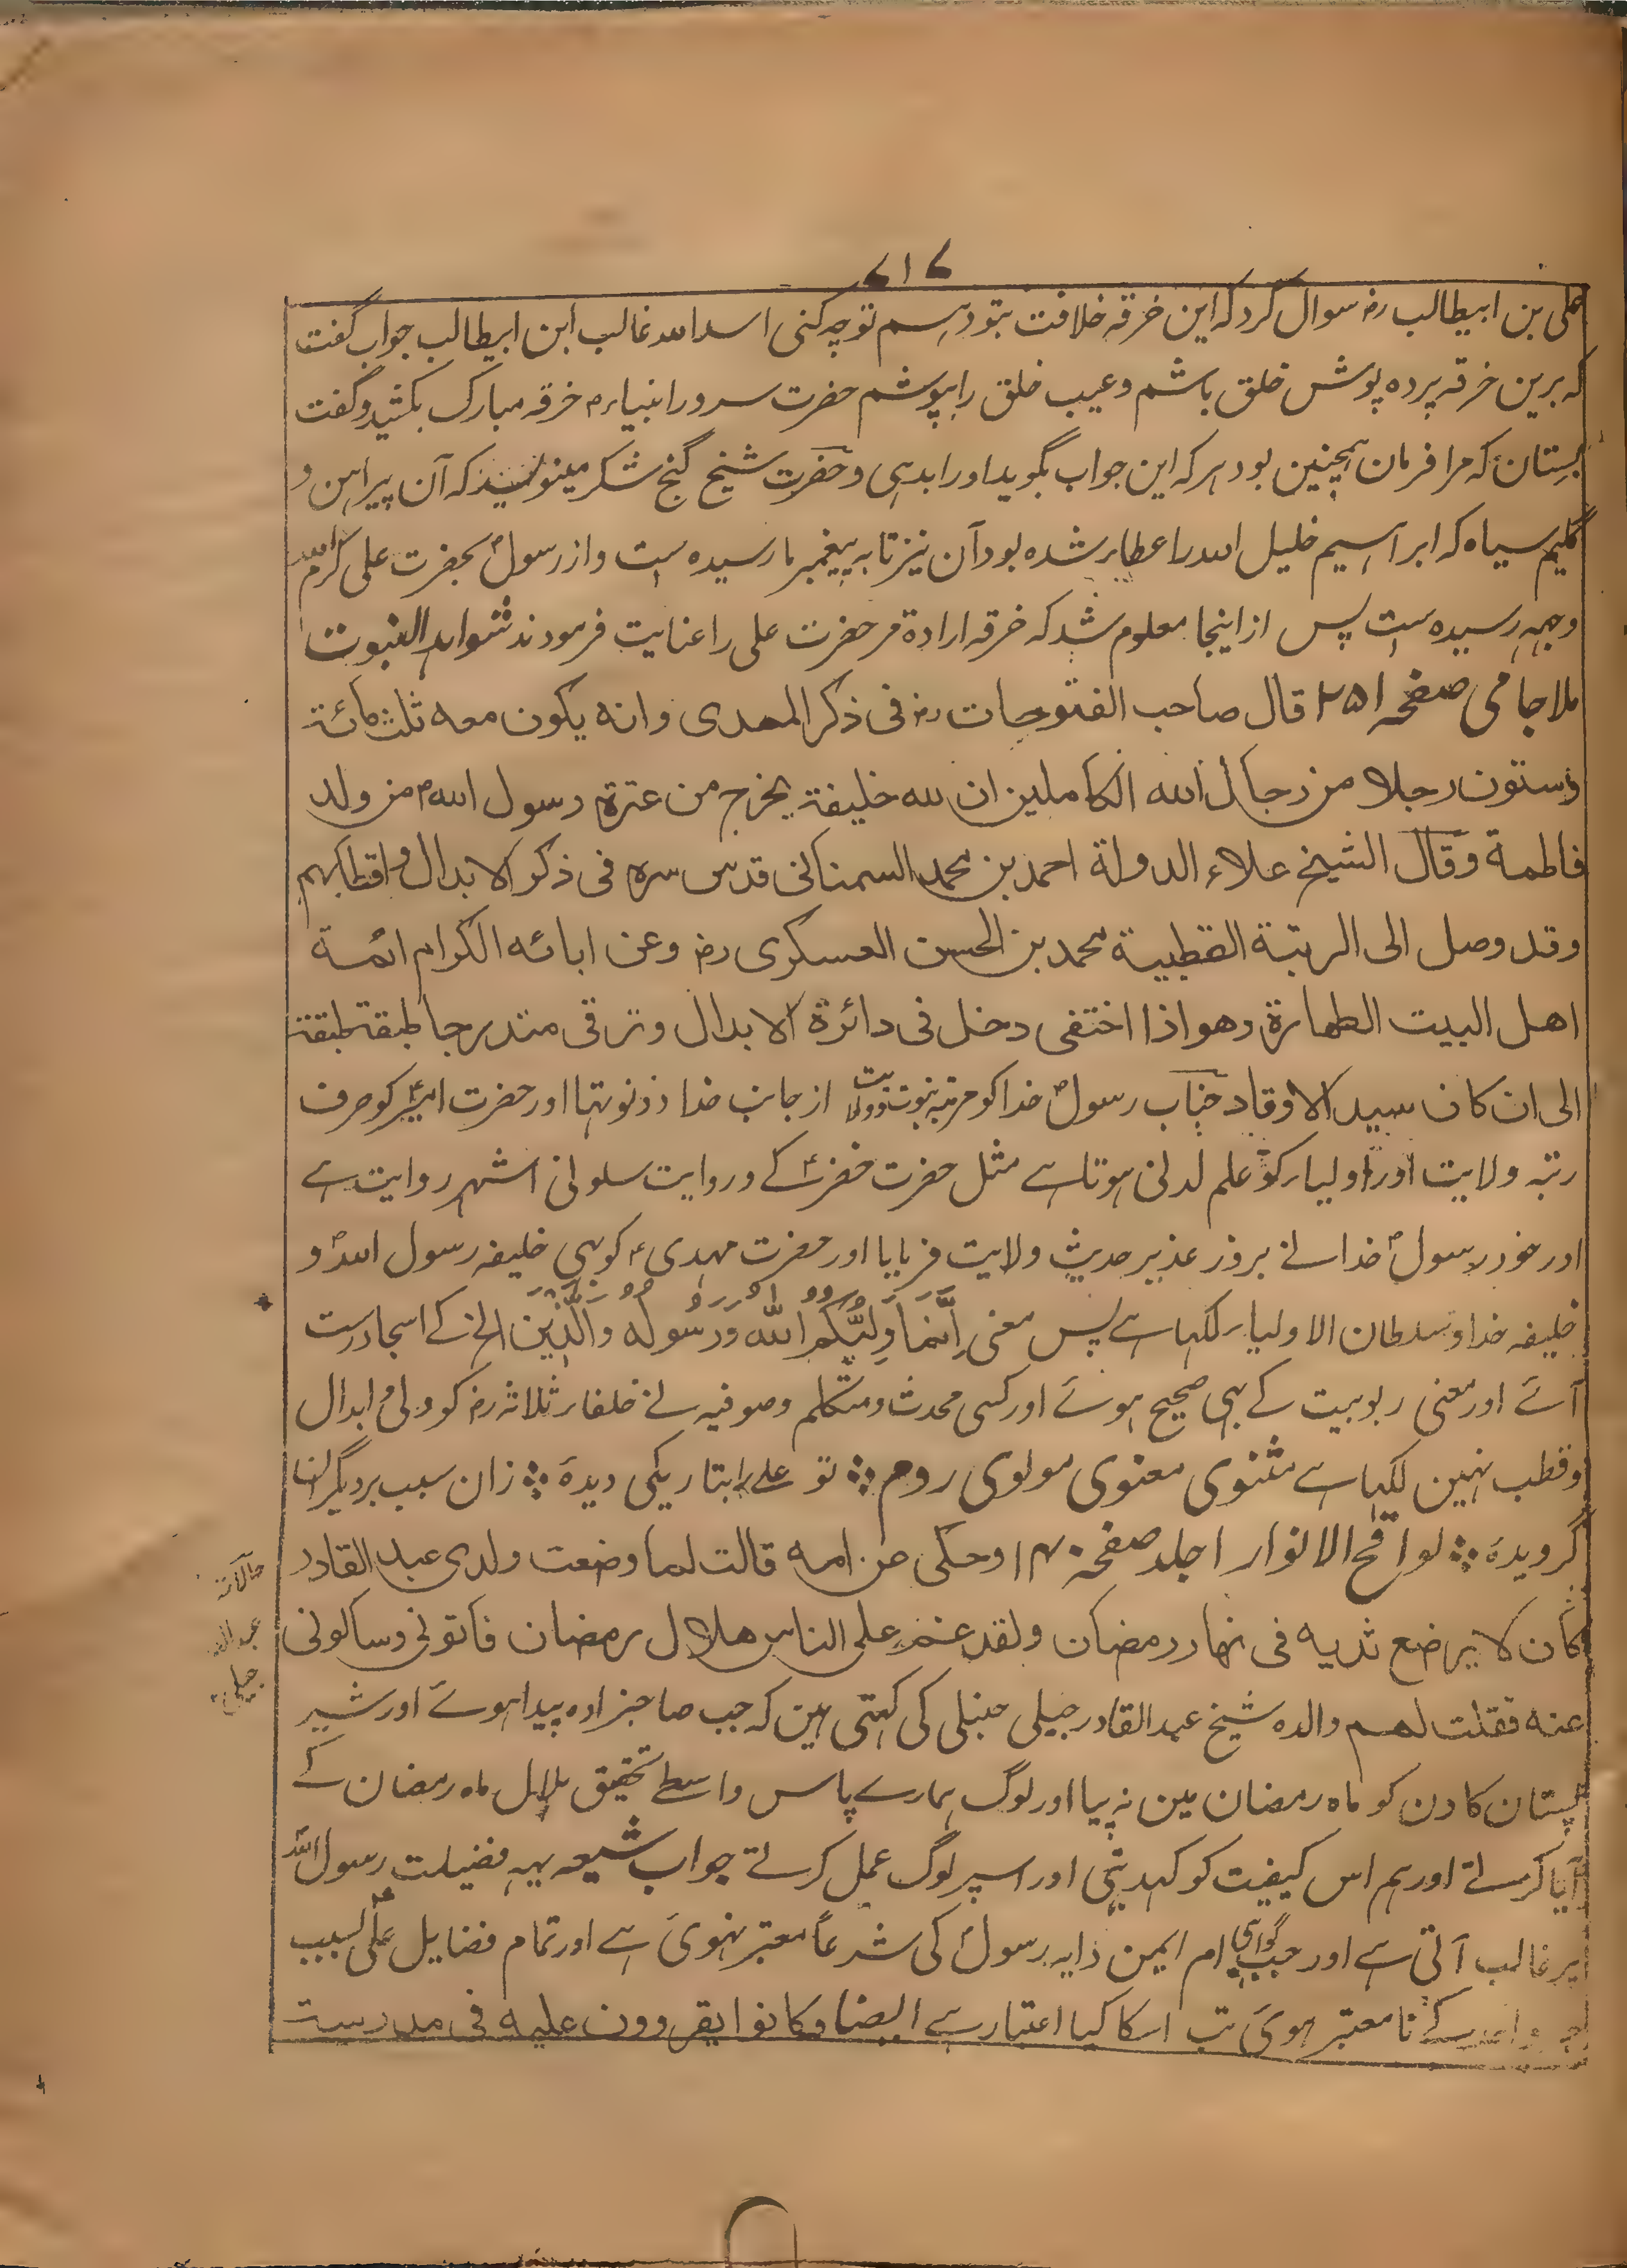 ۷۱۷
علی بن ابیطالب رض سوال کرد که این خرقه خلافت بتو دہم تو چہ کنی اسداللہ غالب ابن ابیطالب جواب گفت
که برین خرقه پرده پوش خلق باشم و عیب خلق را بپوشم حضرت سرور انبیاء م خرقه مبارک بکشید و گفت
بستان که مرا فرمان ہمچنین بود ہر که این جواب بگوید او را بدہی و حضرت شیخ گنج شکر مینویسند که آن پیراہن و
گلیم سیاه که ابراہیم خلیل اللہ را عطا شده بود آن نیز تا به پیغمبر ما رسیده ست و از رسول ؐ بحضرت علی کرم اللہ
وجہہ رسیده ست پس از اینجا معلوم شد که خرقه ارادة مر حضرت علی را عنایت فرمودند شواہد النبوت
ملا جامی صفحہ ۲۵۱ قال صاحب الفتوحات رض فی ذکر المهدی و انه یکون معه ثلث مائة
وستون رجلا من رجال الله الکاملین ان لله خلیفة یخرج من عترة رسول الله م من ولد
فاطمة وقال الشیخ علاء الدولة احمد بن محمد السمنانی قدس سره فی ذکر الابدال و اقطابهم
وقد وصل الی الرتبة القطبیة محمد بن الحسن العسکری رض وعن ابائه الکرام ائمة
اهل البیت الطهارة وهو اذا اختفی دخل فی دائرة الابدال و ترقی متدرجا طبقة طبقة
الی ان کان سید الاوتاد جناب رسول ؐ خدا کو مرتبہ نبوت و ولایت از جانب خدا دونو تہا اور حضرت امیر ؑ کو صرف
رتبہ ولایت اور اولیاء کو علم لدنی ہوتا ہے مثل حضرت خضر ؑ کے و روایت سلونی اشہر روایت ہے
اور خود رسول ؐ خدا نے بروز غدیر حدیث ولایت فرمایا اور حضرت مہدی ؑ کو بہی خلیفہ رسول اللہ ؐ و
خلیفہ خدا و سلطان الاولیاء لکہا ہے پس معنی اِنَّمَا وَلِیُّکُمُ اللّٰهُ وَرَسُوْلُهُ وَالَّذِیْنَ الخ کے اسجا درست
آئے اور معنی ربوبیت کے بہی صحیح ہوئے اور کسی محدث و متکلم و صوفیہ نے خلفاء ثلاثہ رض کو ولی و ابدال
و قطب نہین لکہا ہے مثنوی معنوی مولوی روم ؞ تو علی را بتاریکی دیدۂ ؞ زان سبب بر دیگر انہا
گرویدۂ ؞ لواقح الانوار اجلد صفحہ ۱۴۰ وحکی عن امه قالت لما وضعت ولدی عبد القادر
کان لا یرضع ثدیه فی نهار رمضان ولقد غم علی الناس هلال رمضان فاتونی وسالونی
عنه فقلت لهم والدہ شیخ عبدالقادر جیلی حنبلی کی کہتی ہین که جب صاحبزادہ پیدا ہوئے اور شیر
پستان کا دن کو ماہ رمضان مین نہ پیا اور لوگ ہمارے پاس واسطے تحقیق ہلال ماہ رمضان کے
آیا کرتے اور ہم اس کیفیت کو کہدیتی اور اسپر لوگ عمل کرتے جواب شیعہ یہہ فضیلت رسول اللہ
پر غالب آتی ہے اور جب گواہی ام ایمن دایہ رسول ؐ کی شرعاً معتبر نہوئی ہے اور تمام فضایل علی ؑ بسبب
کے نا معتبر ہوئی تب اسکا کیا اعتبار ہے ایضا وکانوا یقرءون علیه فی مدرسته
حالات
عبدالقادر
جیلی